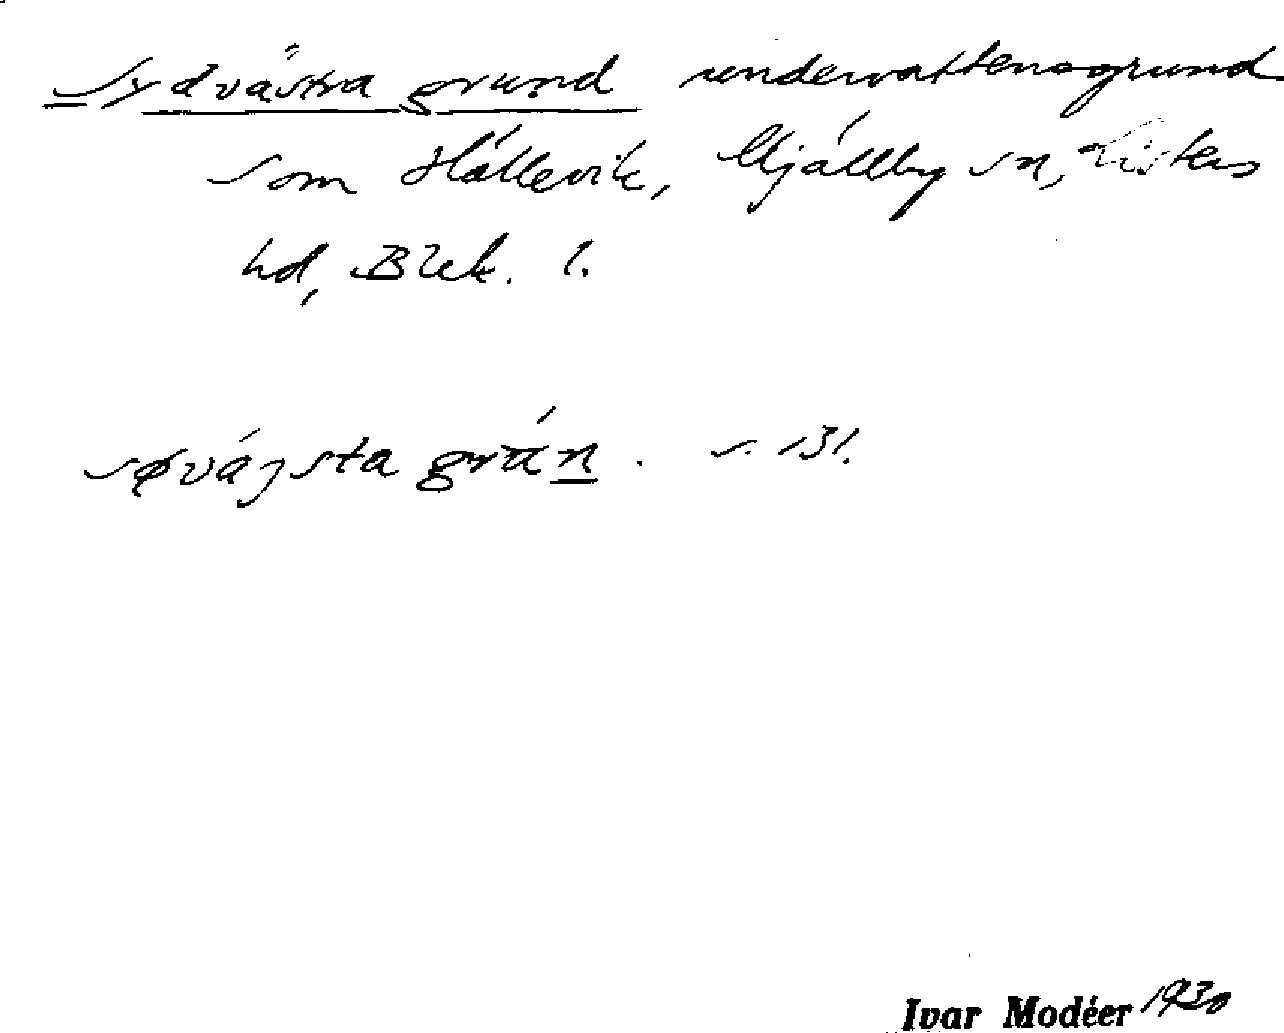 Sydvästra grund undervattensgrund
som Hällevik, Mjällby sn, Listers
hd, Blek. l.
s. 131.
Ivar Modéer 1930